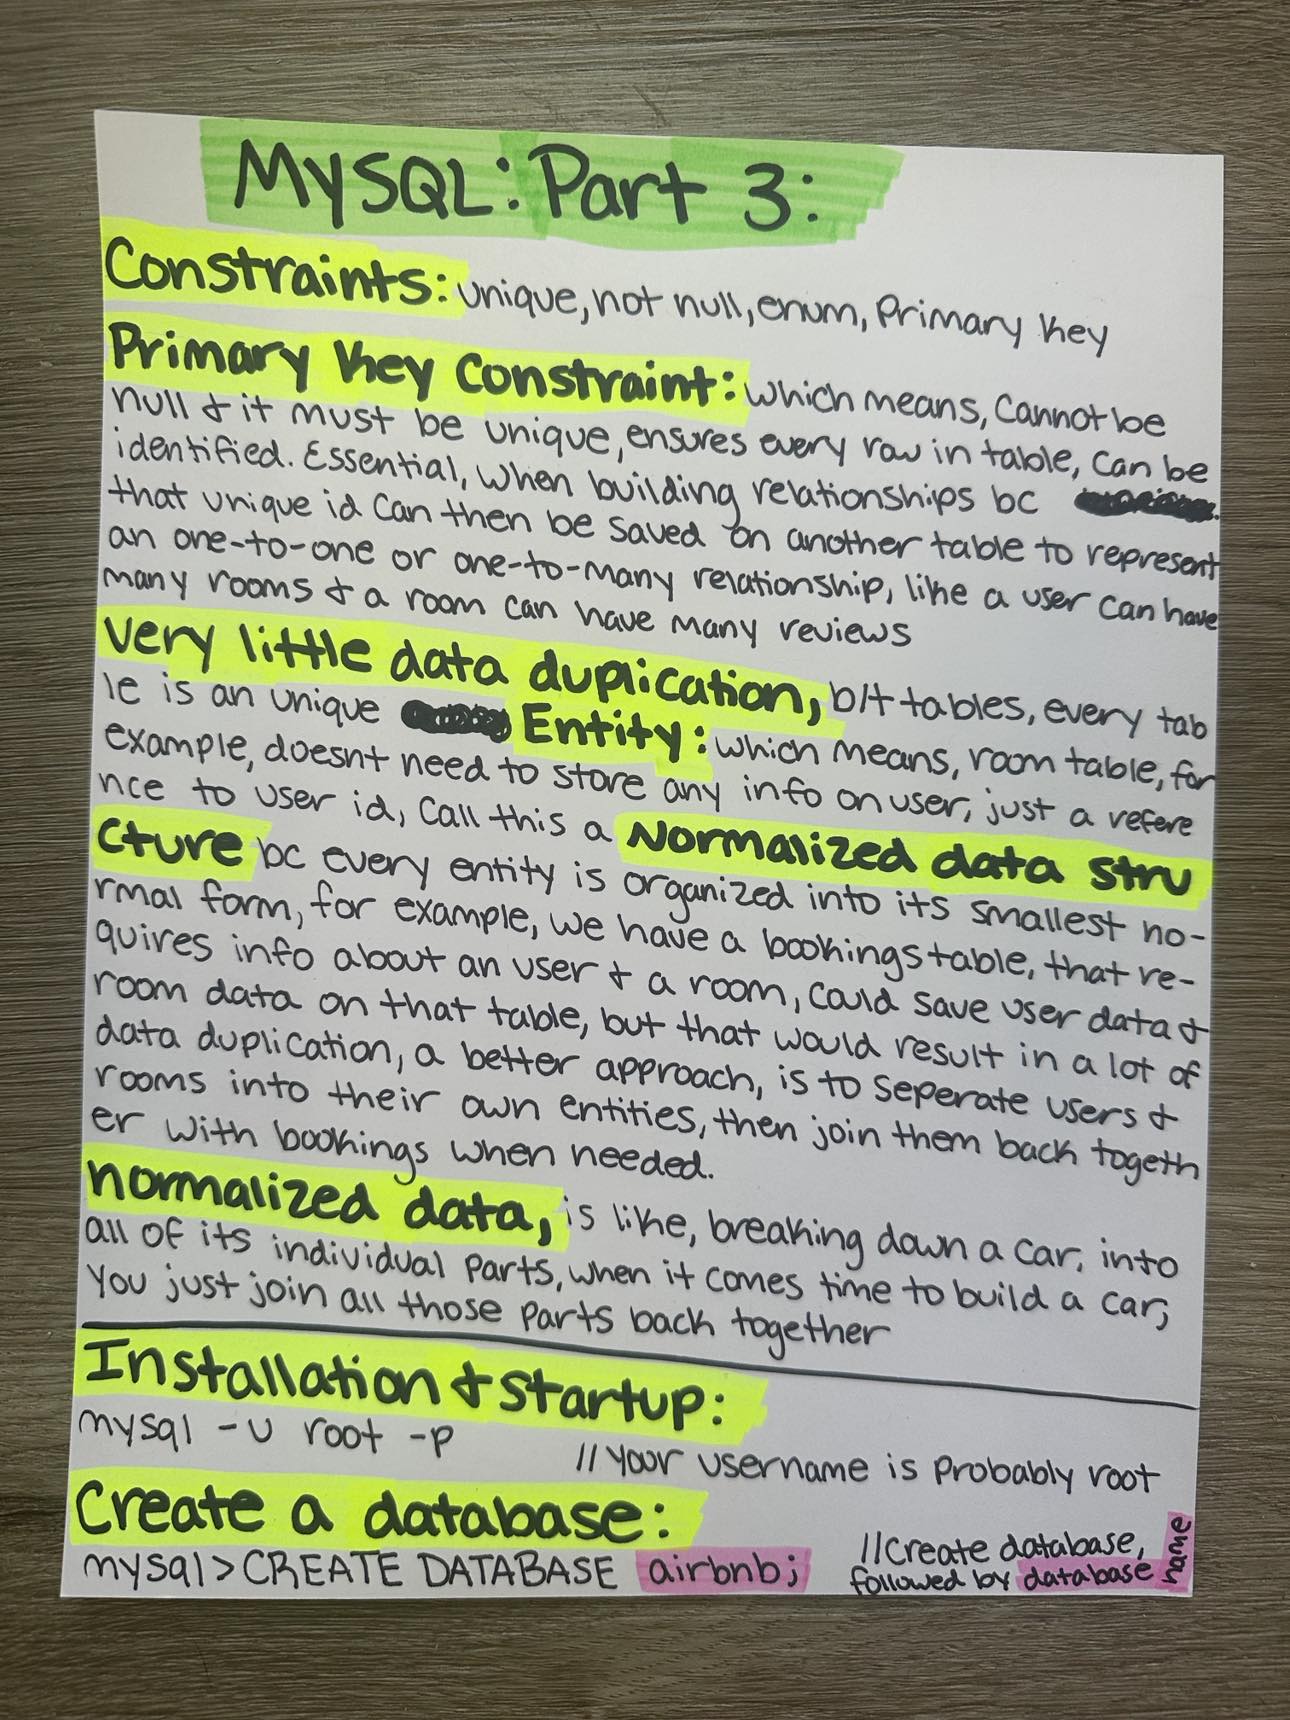 MySQL: Part 3:
Constraints: unique, not null, enum, Primary key
Primary key constraint: which means, cannot be
null & it must be unique, ensures every row in table, can be
identified. Essential, when building relationships bc
that unique id can then be saved on another table to represent
an one-to-one or one-to-many relationship, like a user can have
many rooms & a room can have many reviews
very little data duplication, b/t tables, every tab
le is an unique Entity: which means, room table, for
example, doesnt need to store any info on user, just a refere
nce to user id, call this a Normalized data stru
cture bc every entity is organized into its smallest no-
rmal form, for example, we have a bookings table, that re-
quires info about an user & a room, could save user data &
room data on that table, but that would result in a lot of
data duplication, a better approach, is to seperate users &
rooms into their own entities, then join them back togeth
er with bookings when needed.
normalized data, is like, breaking down a car, into
all of its individual parts, when it comes time to build a car,
you just join all those parts back together
Installation & startup:
mysql -u root -p //your username is probably root
Create a database:
mysql> CREATE DATABASE airbnb; //create database,
followed by database name